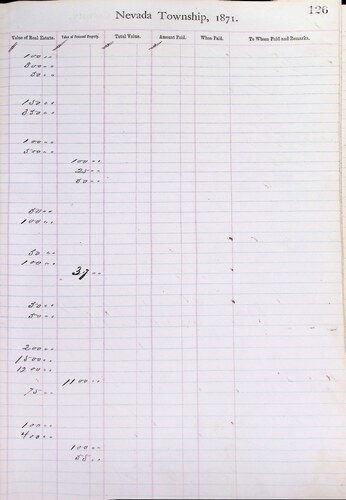 126
Nevada Township, 1871.
Value of Real Estate. Value of Personal Property. Total Value. Amount Paid. When Paid. To Whom Paid and Remarks.
100 00
300 00
50 00
150 00
350 00
100 00
500 00
100 00
25 00
50 00
50 00
100 00
50 00
100 00
37 00
50 00
50 00
200 00
1500 00
1200 00
1100 00
75 00
100 00
400 00
100 00
55 00